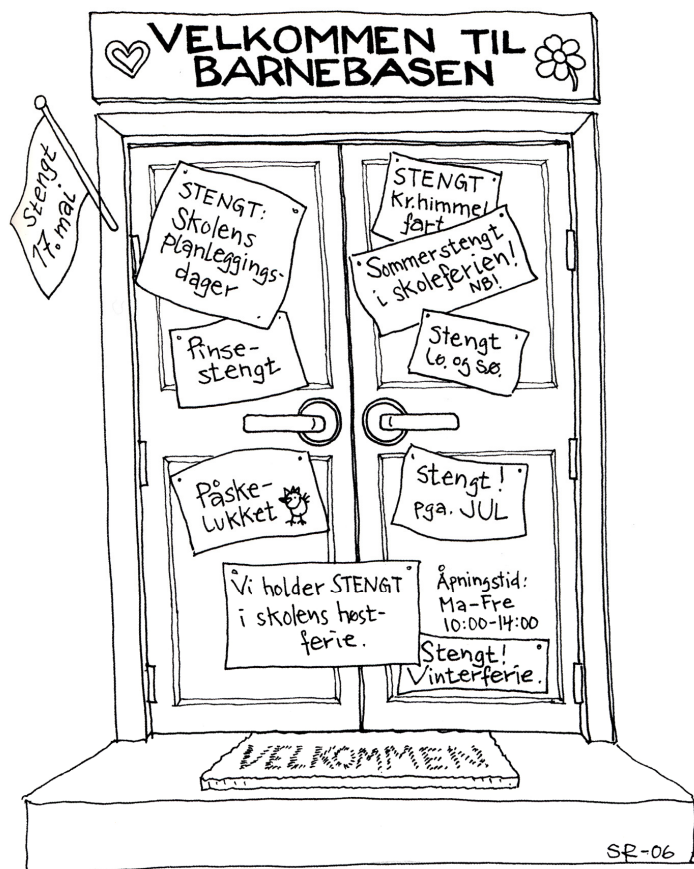 VELKOMMEN TIL
BARNEBASEN
Stengt
17. mai
STENGT:
Skolens
planleggings-
dager
STENGT
Kr.himmel
fart
Sommerstengt
i skoleferien!
NB!
Pinse-
stengt
Stengt
Lø. og Sø.
Påske-
lukket
Stengt!
pga. JUL
Vi holder STENGT
i skolens høst-
ferie.
Åpningstid:
Ma-Fre
10:00-14:00
Stengt!
Vinterferie.
VELKOMMEN
SR-06